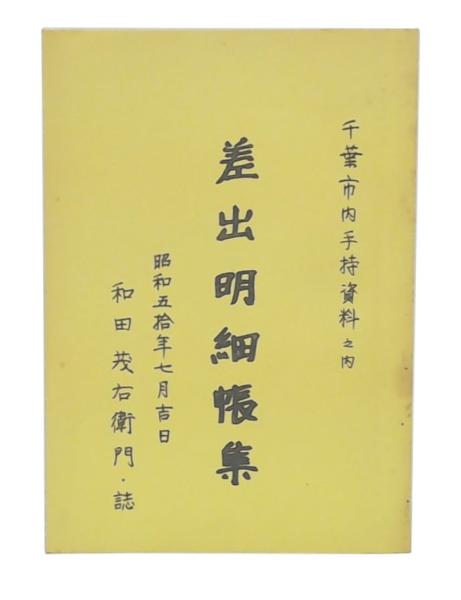 千葉市内手持資料之内
差出明細帳集
昭和五拾年七月吉日
和田茂右衛門・誌